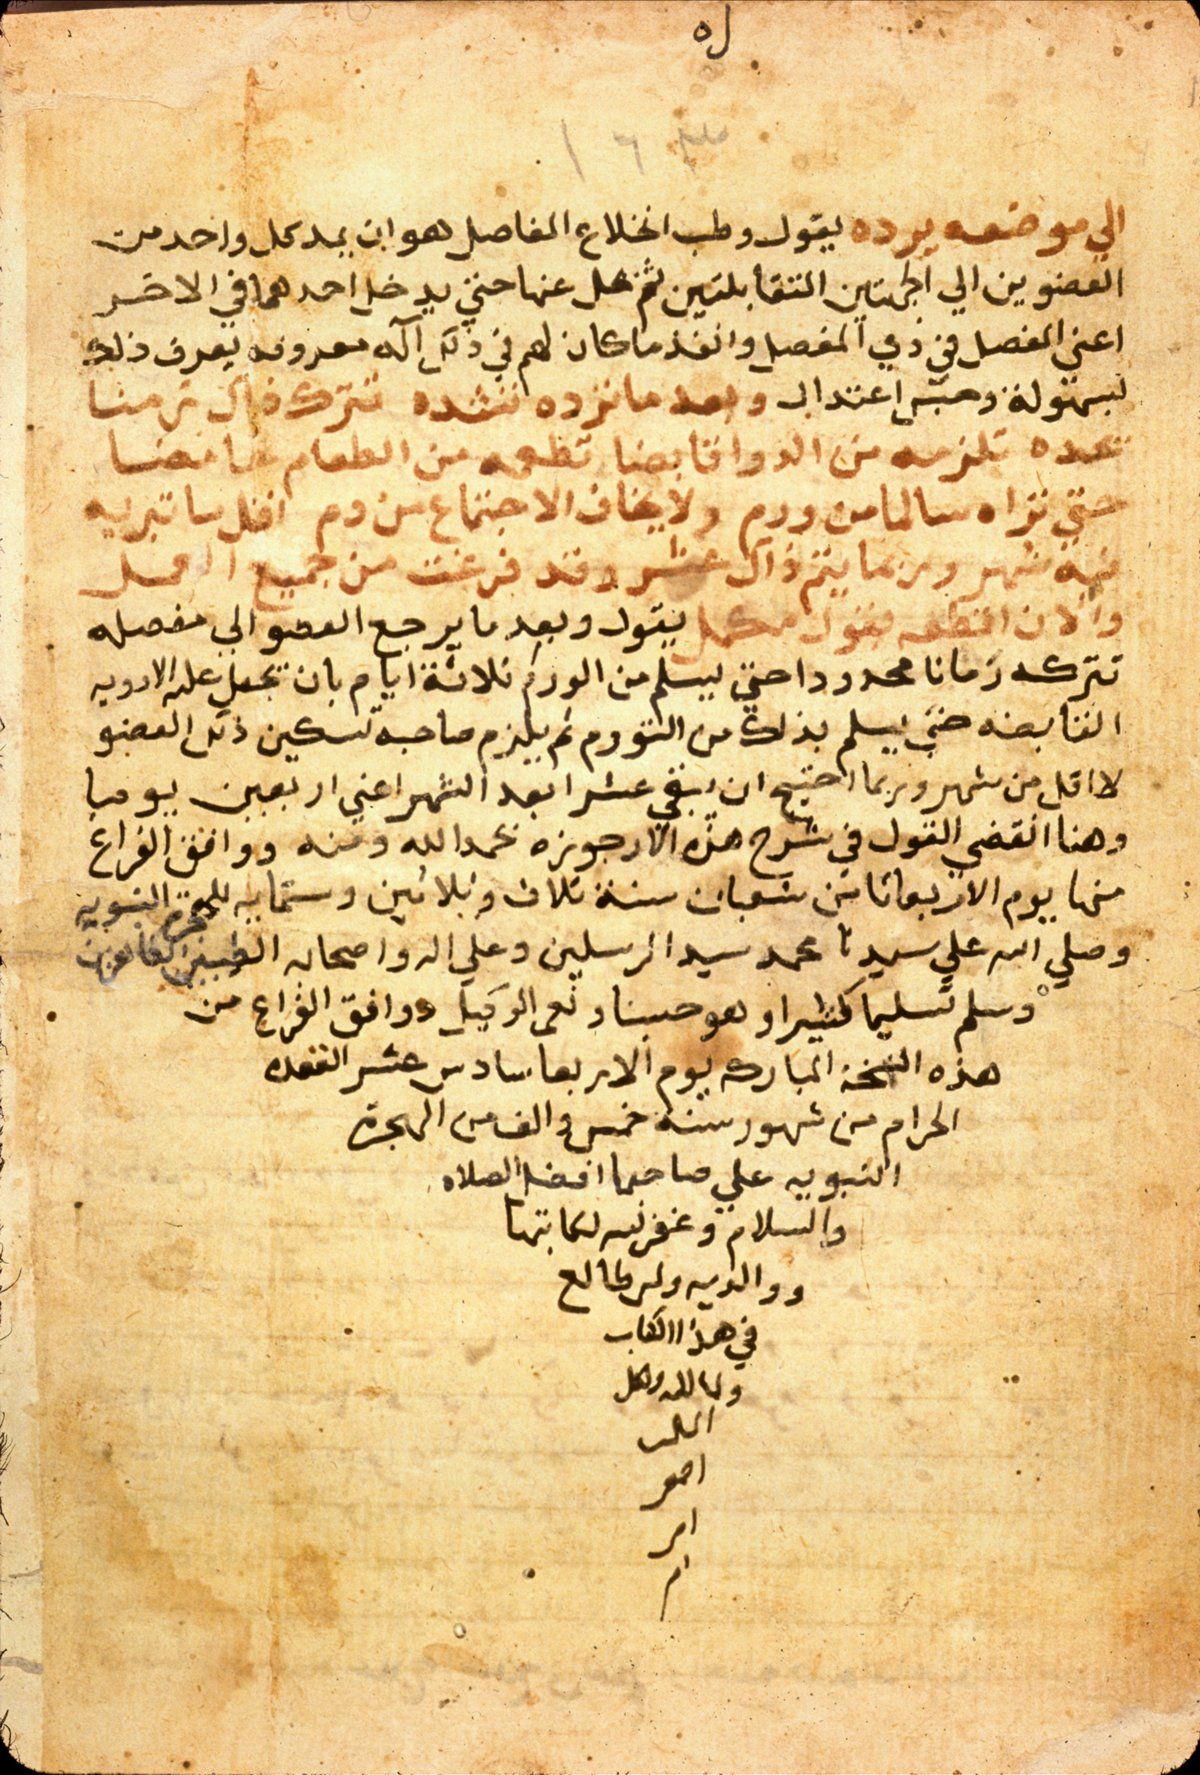 الي موضعه يرده يقول وطب انخلاع المفاصل هو ان يمد كل واحد من
العضوين الي الجهتين المتقابلتين ثم عنها حتي يدخل احدهما في الاخر
اعني المفصل في ذي المفصل وانفذ ما كان لهم في ذلك آله معروفه يعرف ذلك
بسهولة وحسن اعتدال وبعد ما ترده تشده تتركه ذاك زمنا
تعده تلزمه من الدوا قابضا تطعمه من الطعام حامضا
حتي تراه سالما من ورم ولا يخاف الاجتماع من دم اقل ما تبريه
فيه شهر وربما يتم ذاك عشر وقد فرغت من جميع العمل
والان اقطعه بقول مكمل يقول وبعد ما يرجع العضو الي مفصله
تتركه زمانا محدودا حتي يسلم من الورم ثلاثة ايام بان تجعل عليه الادويه
القابضه حتي يسلم بذلك من التورم ثم يلزم صاحبه تسكين ذلك العضو
لا اقل من شهر وربما احتيج ان يبقي عشرا بعد الشهر اعني اربعين يوما
وهنا انقضي القول في شرح هذه الارجوزه بحمد الله ومنه ووافق الفراغ
منها يوم الاربعا ثامن شعبان سنة ثلاث وثلاثين وستمايه للهجرة النبويه
وصلي الله علي سيدنا محمد سيد المرسلين وعلي اله واصحابه الطيبين الطاهرين
وسلم تسليما كثيرا وهو حسبنا ونعم الوكيل ووافق الفراغ من
هذه النسخة المباركه يوم الاربعا سادس عشر القعده
الحرام من شهور سنه خمس والف من الهجرة
النبويه علي صاحبها افضل الصلاه
والسلام وغفر الله لكاتبها
ووالديه ولمن طالع
في هذا الكتاب
ولمالكه ولكل
المسلمين
اجمعين
امين
م